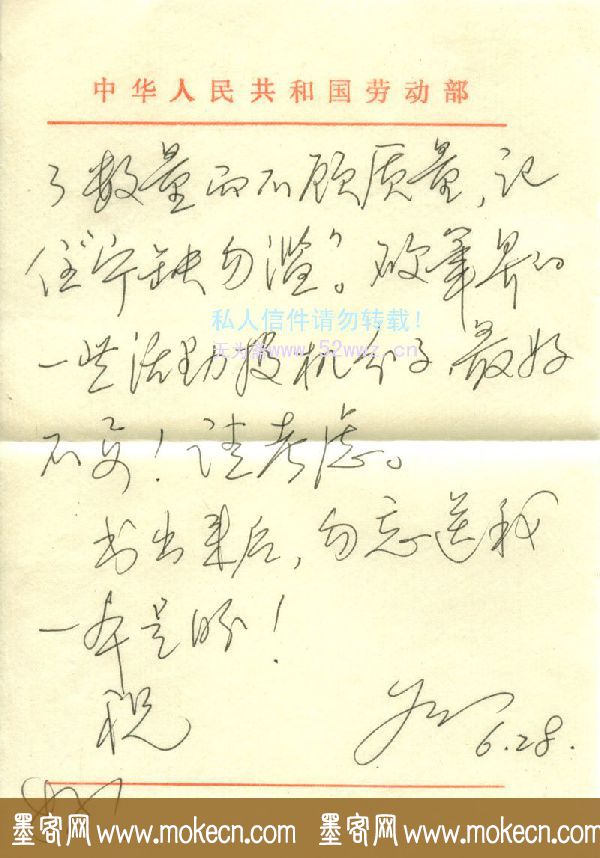 中华人民共和国劳动部
了数量而不顾质量，记
住“宁缺勿滥”。硬笔界的
私人信件请勿转载！
一些活动投机分子，最好
www.52wwz.cn
不要！请考虑。
书出来后，勿忘送我
一本是盼！
祝
6.28.
墨客网 www.mokecn.com 墨客网 www.mokecn.com